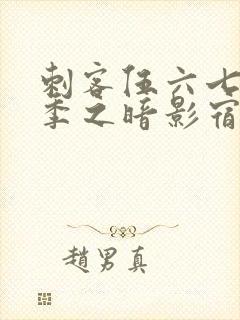 刺客伍六七
季之暗影宿
趙男真